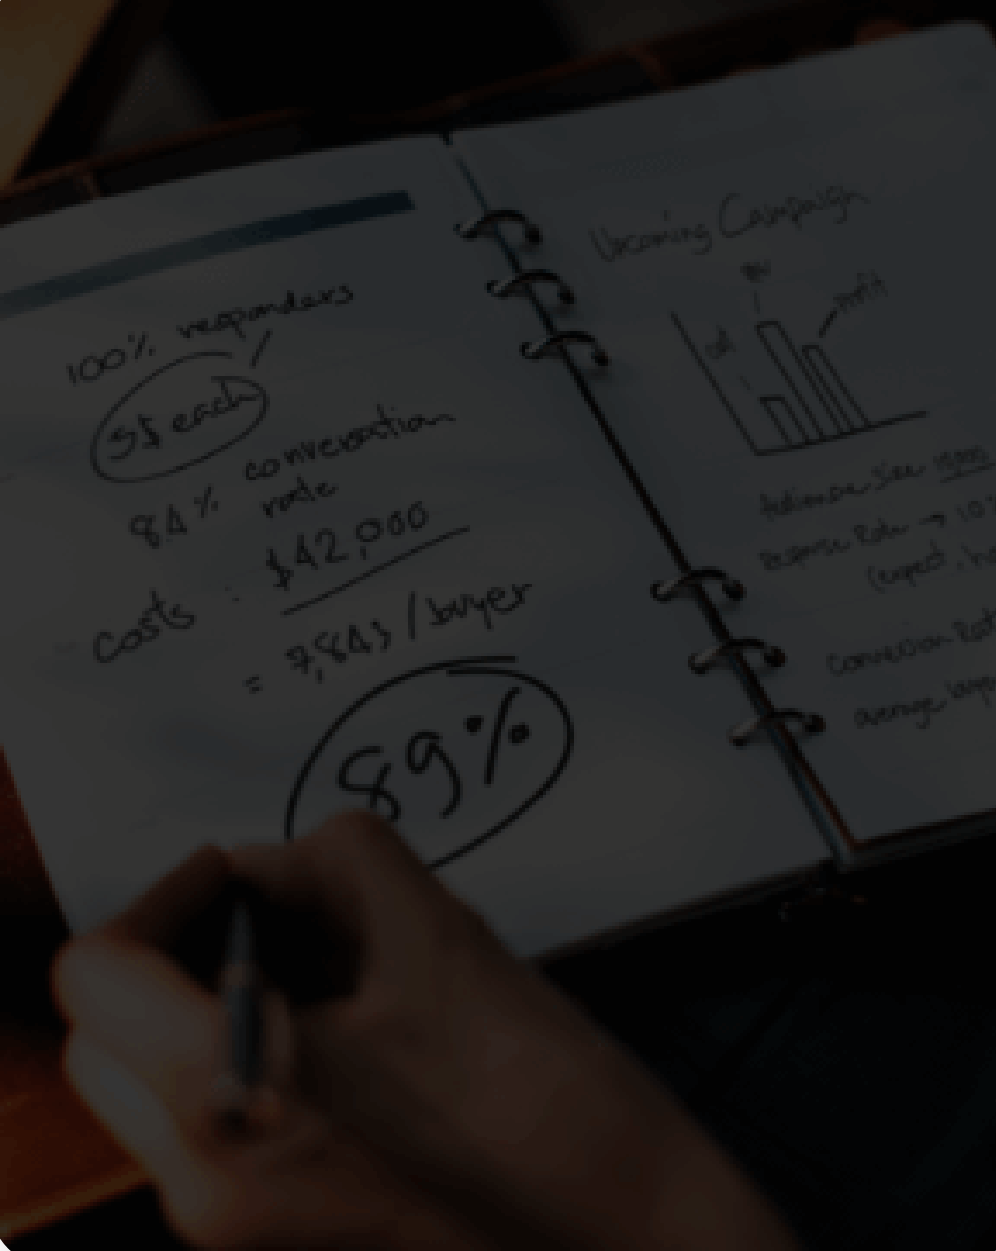 100% responders
5$ each
84% conversation
rate
costs : $42,000
= 7,843 / buyer
89%
Upcoming Campaign
Profit
size
Response Rate → 10%
(expect,
Conversion Rat
average